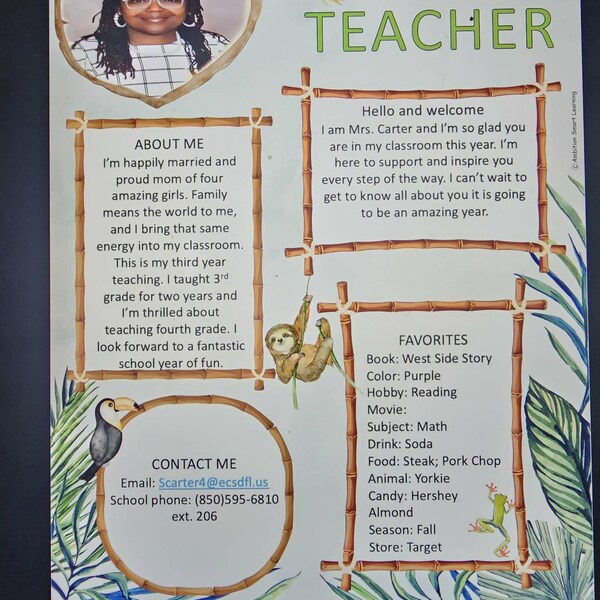 TEACHER
Hello and welcome
I am Mrs. Carter and I'm so glad you
are in my classroom this year. I'm
here to support and inspire you
every step of the way. I can't wait to
get to know all about you it is going
to be an amazing year.
©Ambition Smart Learning
ABOUT ME
I'm happily married and
proud mom of four
amazing girls. Family
means the world to me,
and I bring that same
energy into my classroom.
This is my third year
teaching. I taught 3rd
grade for two years and
I'm thrilled about
teaching fourth grade. I
look forward to a fantastic
school year of fun.
FAVORITES
Book: West Side Story
Color: Purple
Hobby: Reading
Movie:
Subject: Math
Drink: Soda
Food: Steak; Pork Chop
Animal: Yorkie
Candy: Hershey
Almond
Season: Fall
Store: Target
CONTACT ME
Email: Scarter4@ecsdfl.us
School phone: (850)595-6810
ext. 206